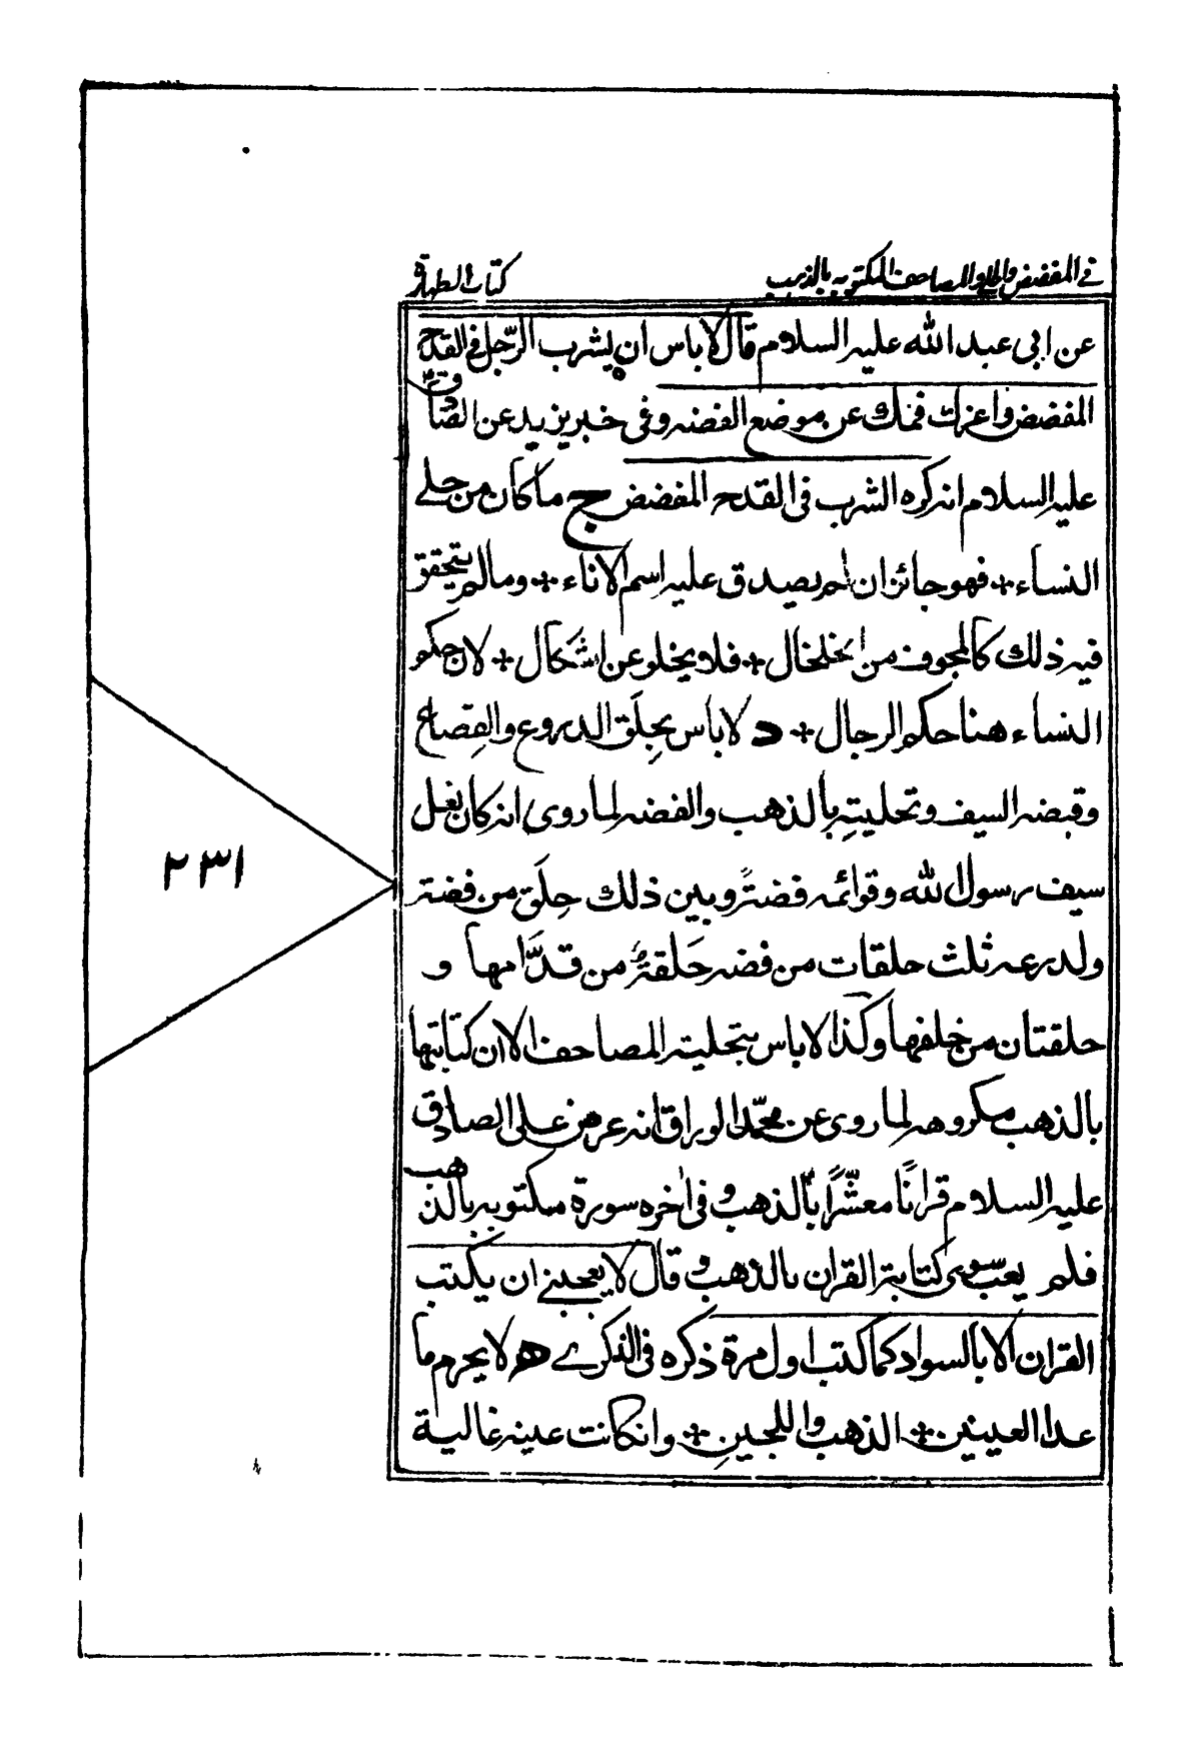 في المفضض والحلي والمصاحف المكتوبه بالذهب
كتاب الطهارة
عن ابي عبد الله عليه السلام قال لا باس ان يشرب الرّجل في القدح
المفضض واعزل فمك عن موضع الفضه وفي خبر يزيد عن الصّادق
عليه السلام انه كره الشرب في القدح المفضض ج ما كان من حلي
النساء + فهو جائز ان لم يصدق عليه اسم الاناء + وما لم يتحقق
فيه ذلك كالمجوف من الخلخال + فلا يخلو عن اشكال + لان حكم
النساء هنا حكم الرجال + د لا باس بحِلَق الدروع والقِصاع
وقبضه السيف وتحليتِه بالذهب والفضه لما روى انه كان نعل
سيف رسول الله وقوائمه فضةً وبين ذلك حِلَق من فضة
ولدرعه ثلث حلقات من فضه حَلقةٌ من قدَّامها و
حلقتان من خلفها وكذا لا باس بتحلية المصاحف الا ان كتابتها
بالذهب مكروهه لما روى عن محمّد الوراق انه عرض على الصادق
عليه السلام قرانًا معشّرًا بالذهب وفي اخره سورة مكتوبه بالذهب
فلم يعب سوى كتابة القران بالذهب وقال لا يعجبني ان يكتب
القران الا بالسواد كما كتب اول مرة ذكره في الذكرے ه لا يحرم ما
عدا العينين + الذهب واللجين + وانكانت عينه غالية
٢٣١